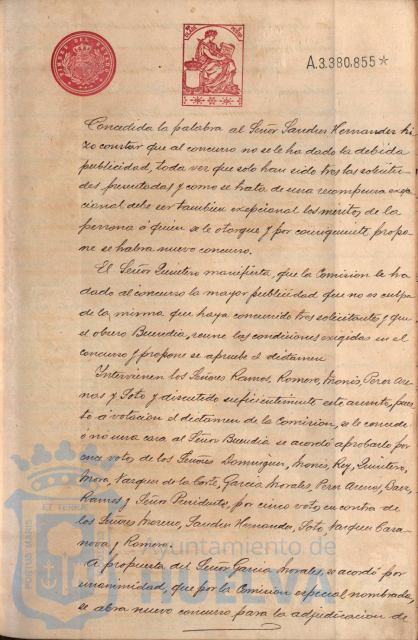 A.3.380.855*
Concedida la palabra al Señor Sanches Hernandez hi
zo constar que al concurso no se le ha dado la debida
publicidad, toda vez que solo han sido tres las solicitu-
des presentadas y como se trata de una recompensa exep
cional debe ser tambien exepcional los meritos de la
persona á quien se le otorgue y por consiguiente propo-
ne se habra nuevo concurso.
El Señor Quintero manifiesta, que la Comision le ha
dado al concurso la mayor publicidad que no es culpa
de la misma que haya concurrido tres solicitantes y que
el obrero Buendia, reune las condiciones exigidas en el
concurso y propone se apruebe el dictamen
Intervienen los Señores Ramos, Romero, Monis, Perez Are
nas y Soto y discutido suficientemente este asunto, pues
to á votacion el dictamen de la Comision, se le concede
ó no una casa al Señor Buendia se acordó aprobarlo por
once votos de los Señores Dominguez, Monis, Rey, Quintero,
Mora, Vazquez de la Corte, Garcia Morales Perez Arenas, Baez,
Ramos y Señor Presidente, por cinco votos en contra de
los Señores Moreno, Sanches Hernandez, Soto, Vazquez Casa
nova y Romero.
A propuesta del Señor Garcia Morales, se acordó por
unanimidad, que por la Comision especial nombrada,
se abra nuevo concurso para la adjudicacion de
PORTUS MARIS
ET TERRAE
Ayuntamiento de
HUELVA